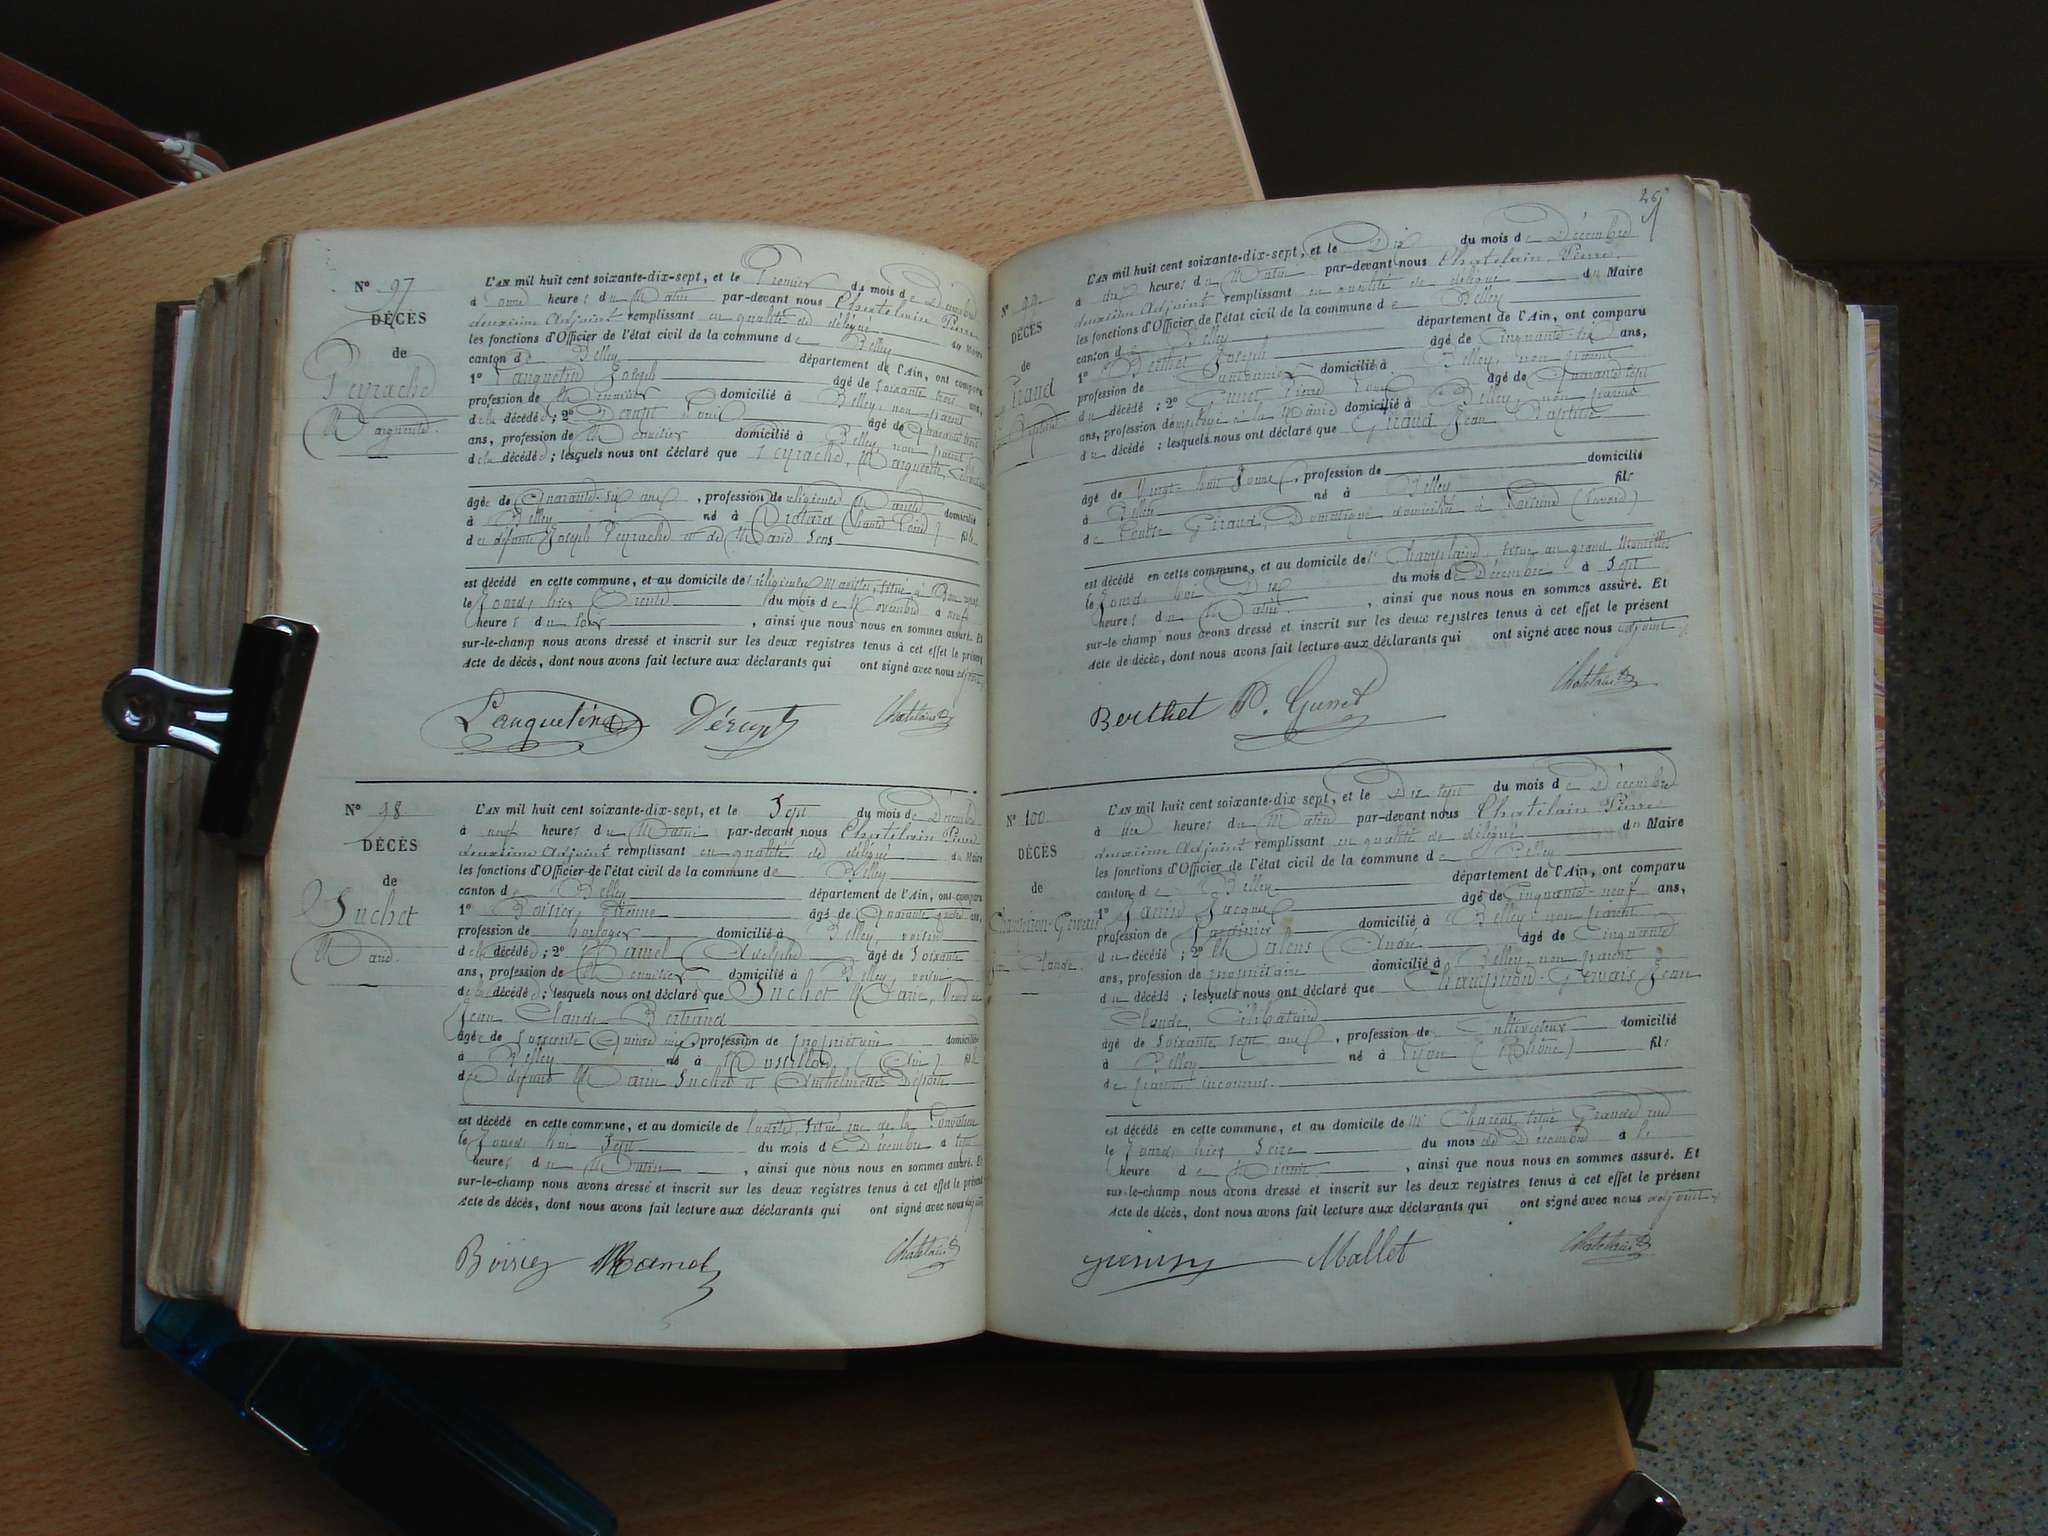 N° 97
DÉCÈS
de
Peyrache
Marguerite
L'AN mil huit cent soixante-dix-sept, et le Premier du mois de Décembre
à onze heures du Matin par-devant nous Chatelain Pierre
deuxième Adjoint remplissant en qualité de délégué du Maire
les fonctions d'Officier de l'état civil de la commune de Belley
canton de Belley département de l'Ain, ont comparu
1° Lanquetin Joseph âgé de soixante trois ans,
profession de Menuisier domicilié à Belley, non parent
de la décédée; 2° Louis âgé de
ans, profession de Menuisier domicilié à Belley, non parent
de la décédée; lesquels nous ont déclaré que Peyrache, Marguerite,
âgée de Quarante-six ans, profession de religieuse Mariste domicilié
à Belley né à (Haute Loire) fille
de défunts Joseph Peyrache et de Marie
est décédé en cette commune, et au domicile des religieuses Maristes, situé à Bon repos
le jour d'hier Trente du mois de Novembre à neuf
heures du soir, ainsi que nous nous en sommes assuré. Et
sur-le-champ nous avons dressé et inscrit sur les deux registres tenus à cet effet le présent
Acte de décès, dont nous avons fait lecture aux déclarants qui ont signé avec nous adjoint
Lanquetin Chatelain
N° 98
DÉCÈS
de
Suchet
Marie
L'AN mil huit cent soixante-dix-sept, et le Sept du mois de Décembre
à neuf heures du Matin par-devant nous Chatelain Pierre
deuxième Adjoint remplissant en qualité de délégué du Maire
les fonctions d'Officier de l'état civil de la commune de Belley
canton de Belley département de l'Ain, ont comparu
1° Etienne âgé de Quarante quatre ans,
profession de horloger domicilié à Belley, voisin
de la décédée; 2° Mamel Adolphe âgé de soixante
ans, profession de Menuisier domicilié à Belley, voisin
de la décédée; lesquels nous ont déclaré que Suchet Marie, Veuve de
Jean Claude Bertrand
âgée de soixante Quinze ans profession de propriétaire domicilié
à Belley né à (Ain) fille
de défunts Marin Suchet et Anthelmette
est décédé en cette commune, et au domicile de situé rue de la
le jour d'hui Sept du mois de Décembre à sept
heures du Matin, ainsi que nous nous en sommes assuré. Et
sur-le-champ nous avons dressé et inscrit sur les deux registres tenus à cet effet le présent
Acte de décès, dont nous avons fait lecture aux déclarants qui ont signé avec nous adjoint
Mamel Chatelain
N° 99
DÉCÈS
de
Giraud
L'AN mil huit cent soixante-dix-sept, et le Dix du mois de Décembre
à dix heures du Matin par-devant nous Chatelain Pierre
deuxième Adjoint remplissant en qualité de délégué du Maire
les fonctions d'Officier de l'état civil de la commune de Belley
canton de Belley département de l'Ain, ont comparu
1° Berthet Joseph âgé de Cinquante six ans,
profession de domicilié à Belley, non parent
du décédé; 2° âgé de Quarante sept
ans, profession d'employé à la Mairie domicilié à Belley, non parent
du décédé; lesquels nous ont déclaré que Giraud Jean Baptiste
âgé de Vingt-huit jours, profession de domicilié
à Belley né à Belley fils
de Giraud, Domestique domiciliée à (Savoie)
est décédé en cette commune, et au domicile de situé au grand
le jour d'hui Dix du mois de Décembre à Sept
heures du Matin, ainsi que nous nous en sommes assuré. Et
sur-le-champ nous avons dressé et inscrit sur les deux registres tenus à cet effet le présent
Acte de décès, dont nous avons fait lecture aux déclarants qui ont signé avec nous adjoint
Berthet Chatelain
N° 100
DÉCÈS
de
Champion-Gervais
Jean Claude
L'AN mil huit cent soixante-dix sept, et le Dix sept du mois de Décembre
à dix heures du Matin par-devant nous Chatelain Pierre
deuxième Adjoint remplissant en qualité de délégué du Maire
les fonctions d'Officier de l'état civil de la commune de Belley
canton de Belley département de l'Ain, ont comparu
1° Jacques âgé de Cinquante-neuf ans,
profession de Jardinier domicilié à Belley, non parent
du décédé; 2° André âgé de Cinquante
ans, profession de propriétaire domicilié à Belley, non parent
du décédé; lesquels nous ont déclaré que Champion-Gervais Jean
Claude, Célibataire
âgé de soixante sept ans, profession de Cultivateur domicilié
à Belley né à Lyon (Rhône) fils
de parents inconnus
est décédé en cette commune, et au domicile de Mr situé Grande rue
le jour d'hier Seize du mois de Décembre à
heure de, ainsi que nous nous en sommes assuré. Et
sur-le-champ nous avons dressé et inscrit sur les deux registres tenus à cet effet le présent
Acte de décès, dont nous avons fait lecture aux déclarants qui ont signé avec nous adjoint
Mallet Chatelain